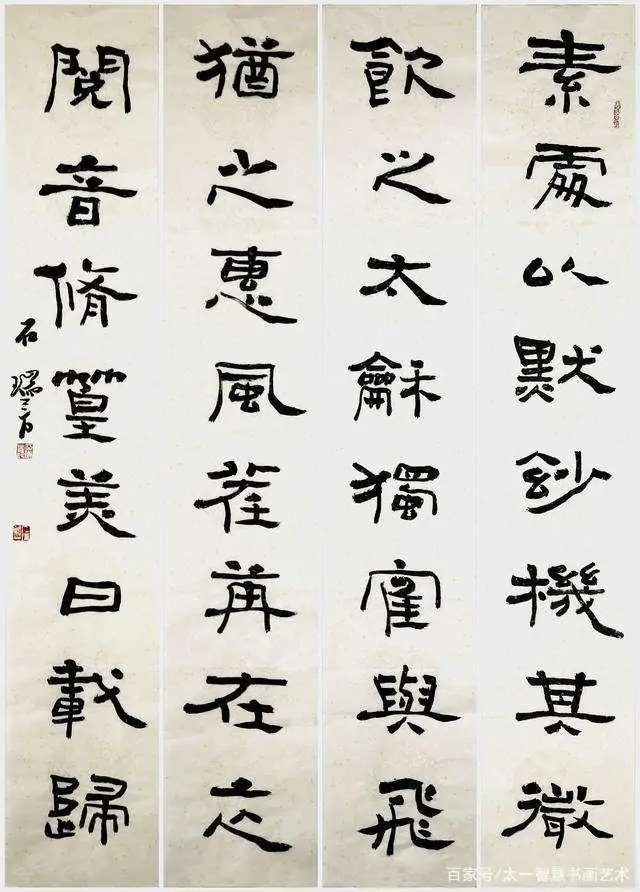 素處以默玅機其微
飲之太龢獨寉與飛
猶之惠風荏苒在衣
閱音脩篁美曰載歸
石瑞芳
百家号/太一智慧书画艺术